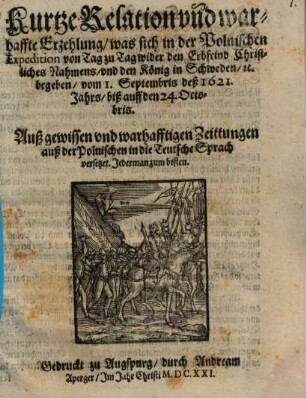 1.
Kurtze Relation vnd war-
haffte Erzehlung / was sich in der Polnischen
Expedition von Tag zu Tag wider den Erbfeind Christ-
liches Nahmens / vnd den König in Schweden / ꝛc.
begeben / vom 1. Septembris deß 1621.
Jahrs / biß auff den 24. Octo-
bris.
Auß gewissen vnd warhafftigen Zeittungen
auß der Polnischen in die Teutsche Sprach
versetzet. Jederman zum besten.
Gedruckt zu Augspurg / durch Andream
Aperger / Im Jahr Christi M. DC. XXI.